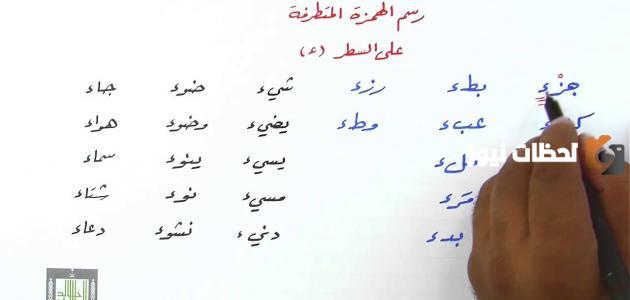 رسم الهمزة المتطرفة
على السطر (ء)
جزْء بطء رزء شيء ضوء جاء
عبء وطء يضيء وضوء هواء
لحظات نيوز
يسيء ينوء سماء
مَرء مسيء نوء شتاء
بدء دنيء نشوء دعاء